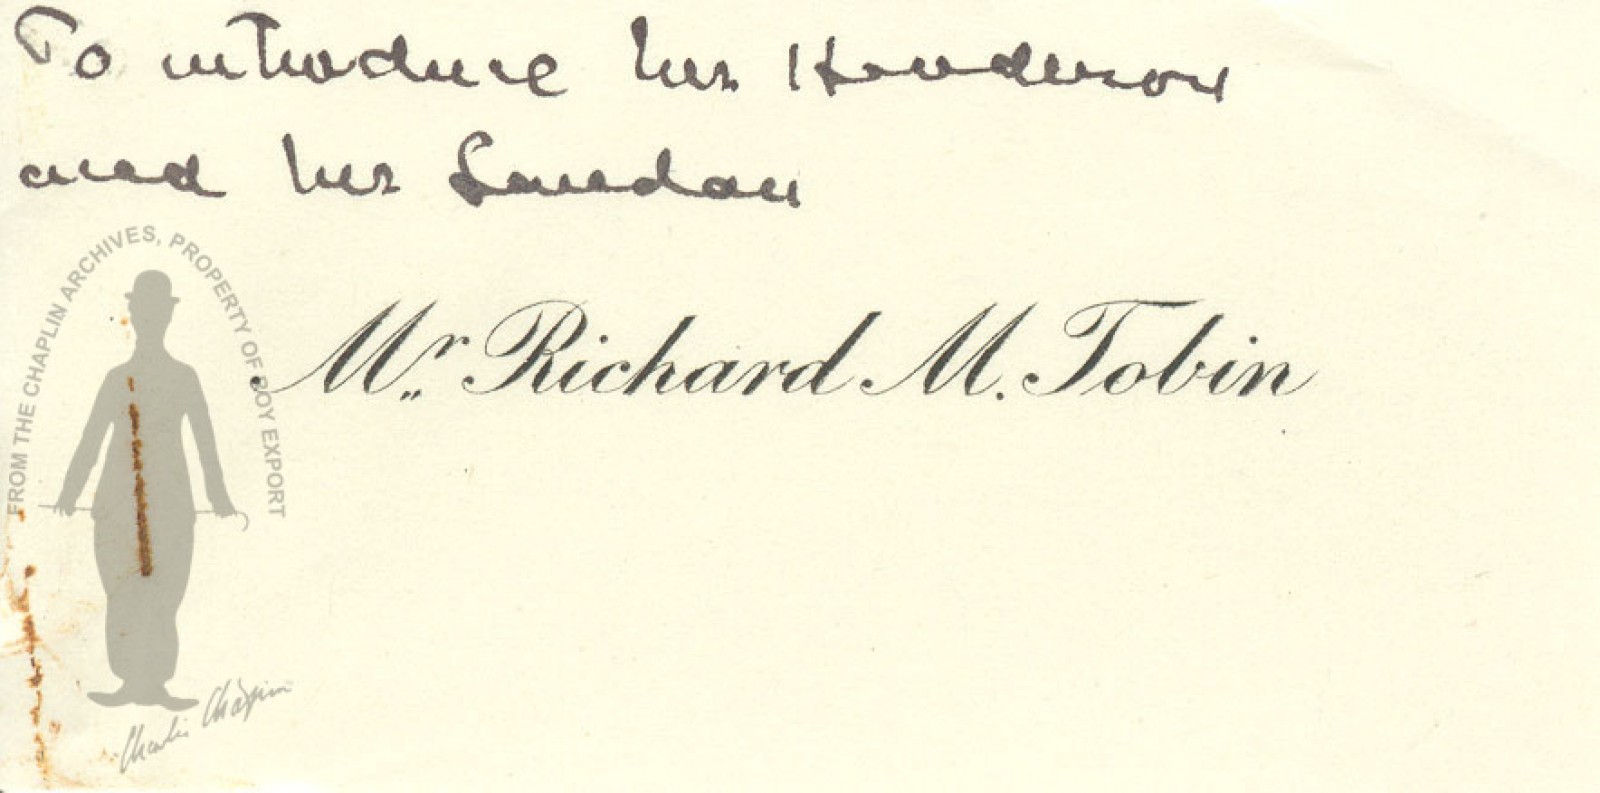 To introduce Mr Henderson
and Mr Landau
Mr. Richard M. Tobin
FROM THE CHAPLIN ARCHIVES, PROPERTY OF ROY EXPORT
Charlie Chaplin